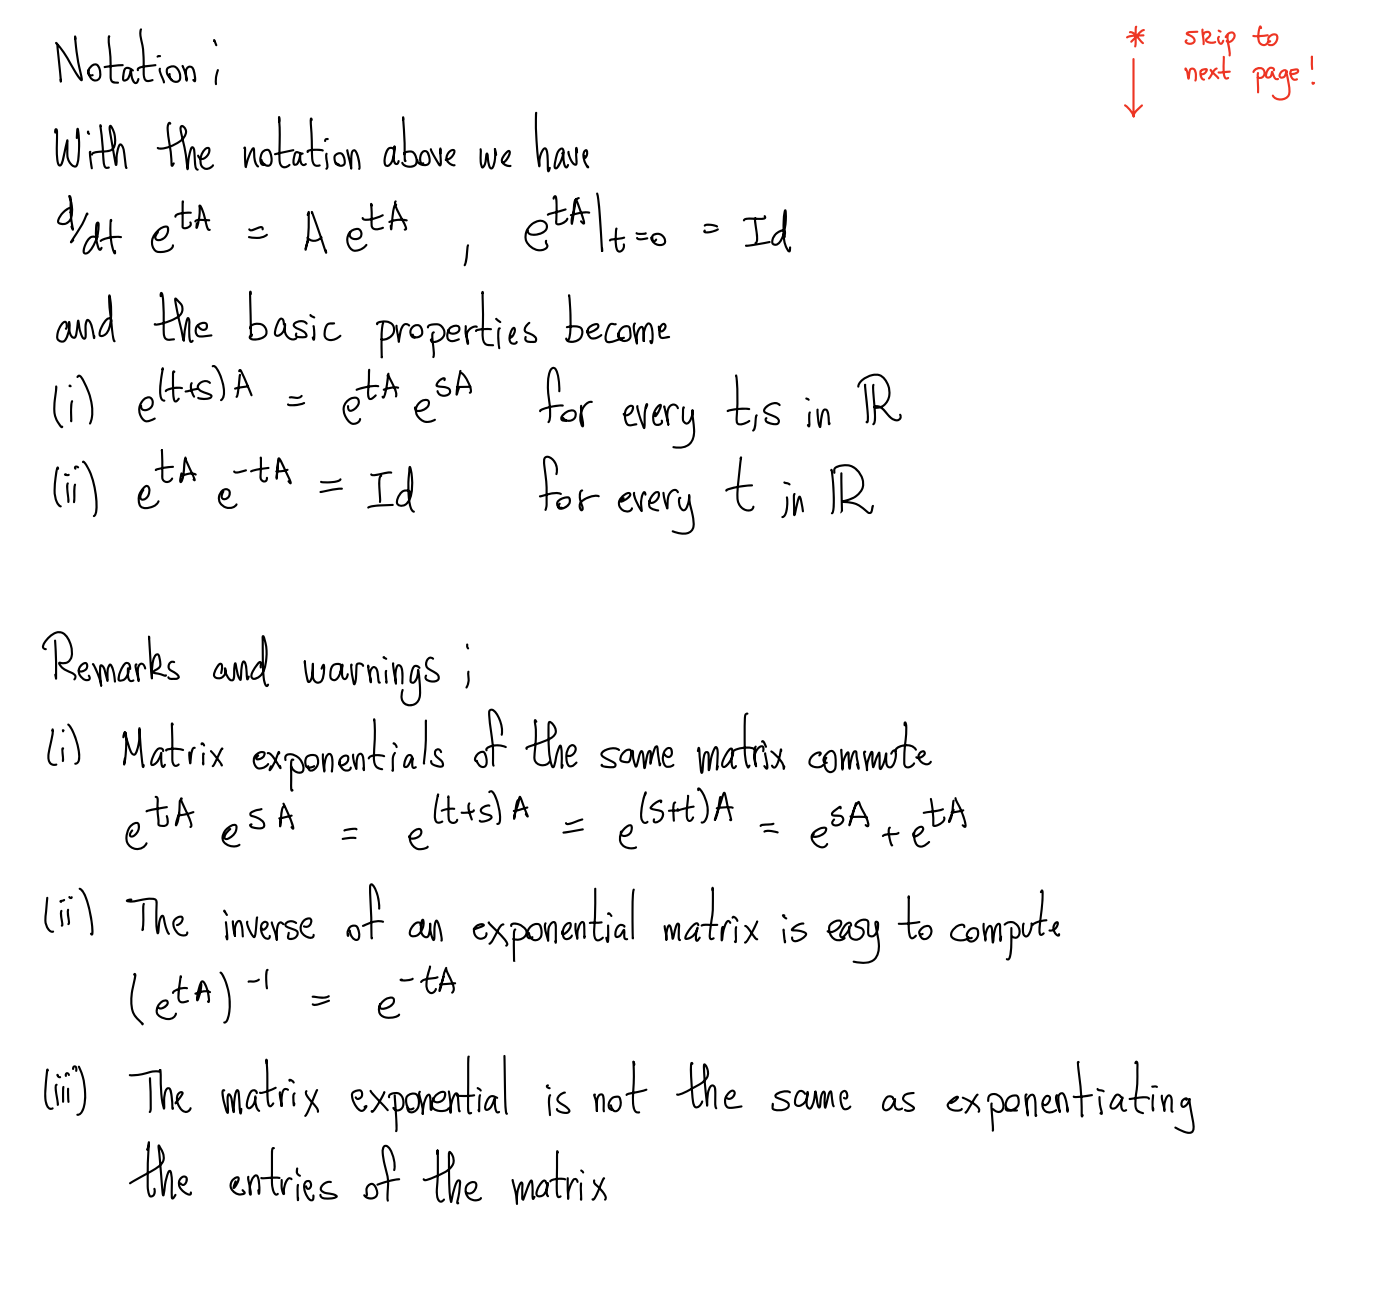 Notation ;
* skip to
next page!
↓
With the notation above we have
d/dt e^{tA} = A e^{tA} , e^{tA}|_{t=0} = Id
and the basic properties become
(i) e^{(t+s)A} = e^{tA} e^{sA} for every t,s in ℝ
(ii) e^{tA} e^{-tA} = Id for every t in ℝ
Remarks and warnings ;
(i) Matrix exponentials of the same matrix commute
e^{tA} e^{sA} = e^{(t+s)A} = e^{(s+t)A} = e^{sA} + e^{tA}
(ii) The inverse of an exponential matrix is easy to compute
(e^{tA})^{-1} = e^{-tA}
(iii) The matrix exponential is not the same as exponentiating
the entries of the matrix